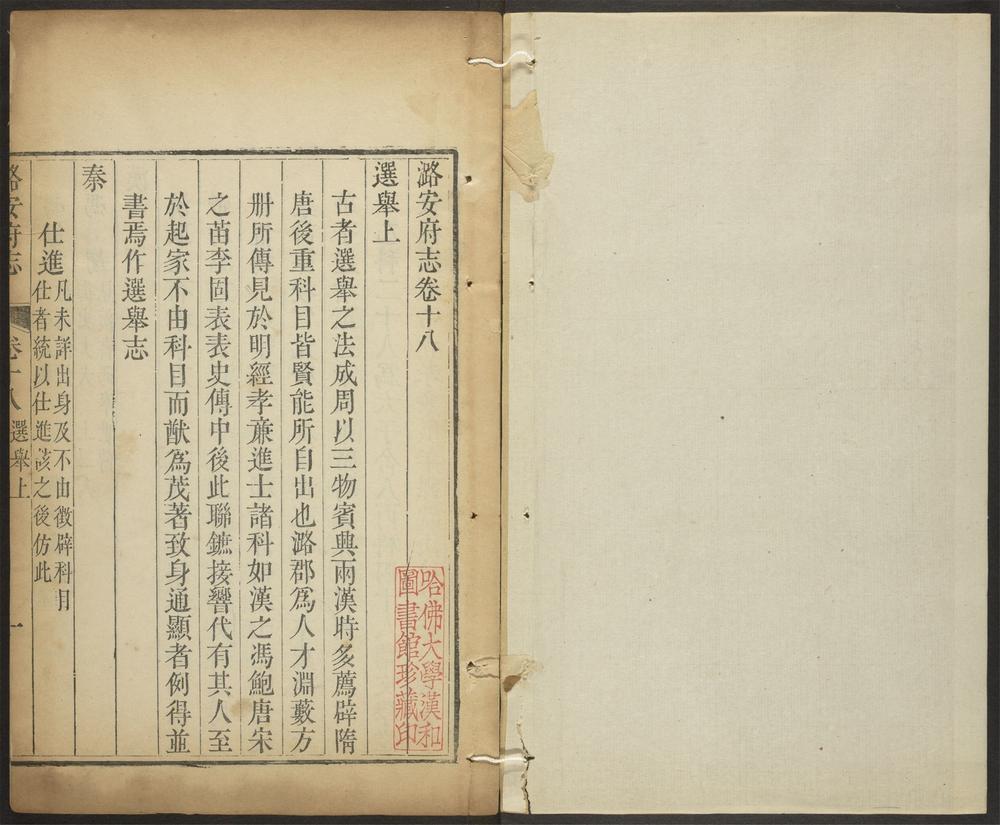 潞安府志卷十八
選舉上
古者選舉之法成周以三物賓興兩漢時多薦辟隋
唐後重科目皆賢能所自出也潞郡為人才淵藪方
冊所傳見於明經孝亷進士諸科如漢之馮鮑唐宋
之苗李固表表史傳中後此聯鑣接響代有其人至
於起家不由科目而猷為茂著致身通顯者例得並
書焉作選舉志
秦
仕進凡未詳出身及不由徵辟科目
仕者統以仕進該之後仿此
潞安府志 卷十八 選舉上 一
哈佛大學漢和
圖書館珍藏印